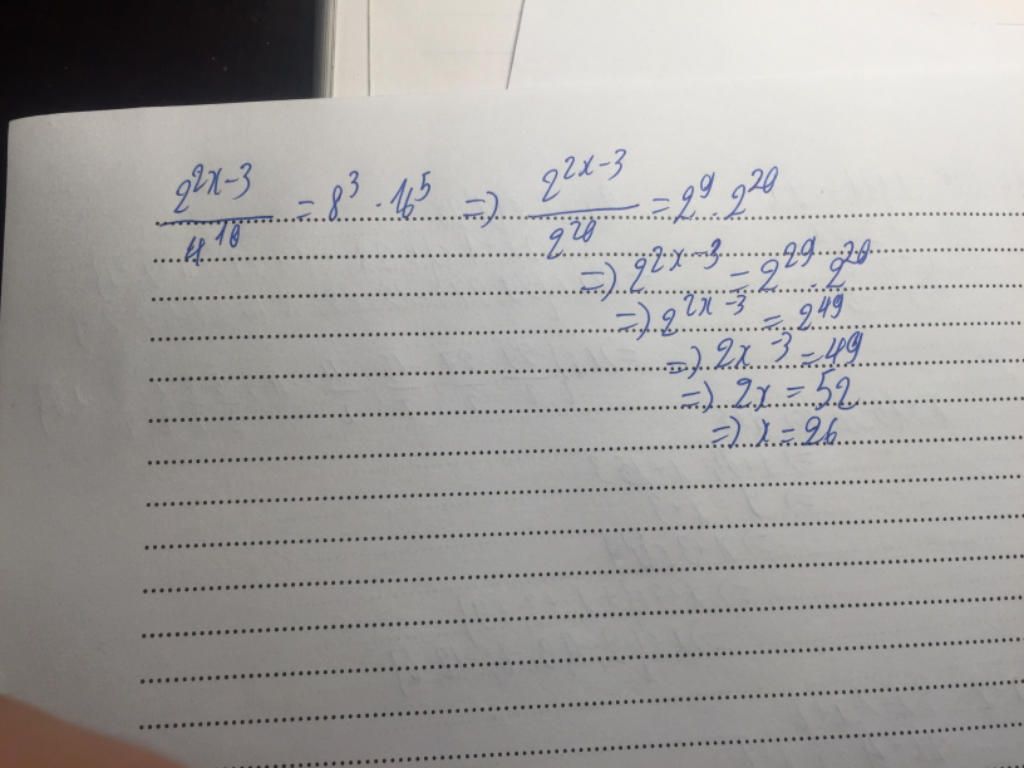 2^{2x-3}/4^{10} = 8^3 . 16^5 => 2^{2x-3}/2^{20} = 2^9 . 2^{20}
=> 2^{2x-3} = 2^{29} . 2^{20}
=> 2^{2x-3} = 2^{49}
=> 2x-3 = 49
=> 2x = 52
=> x = 26